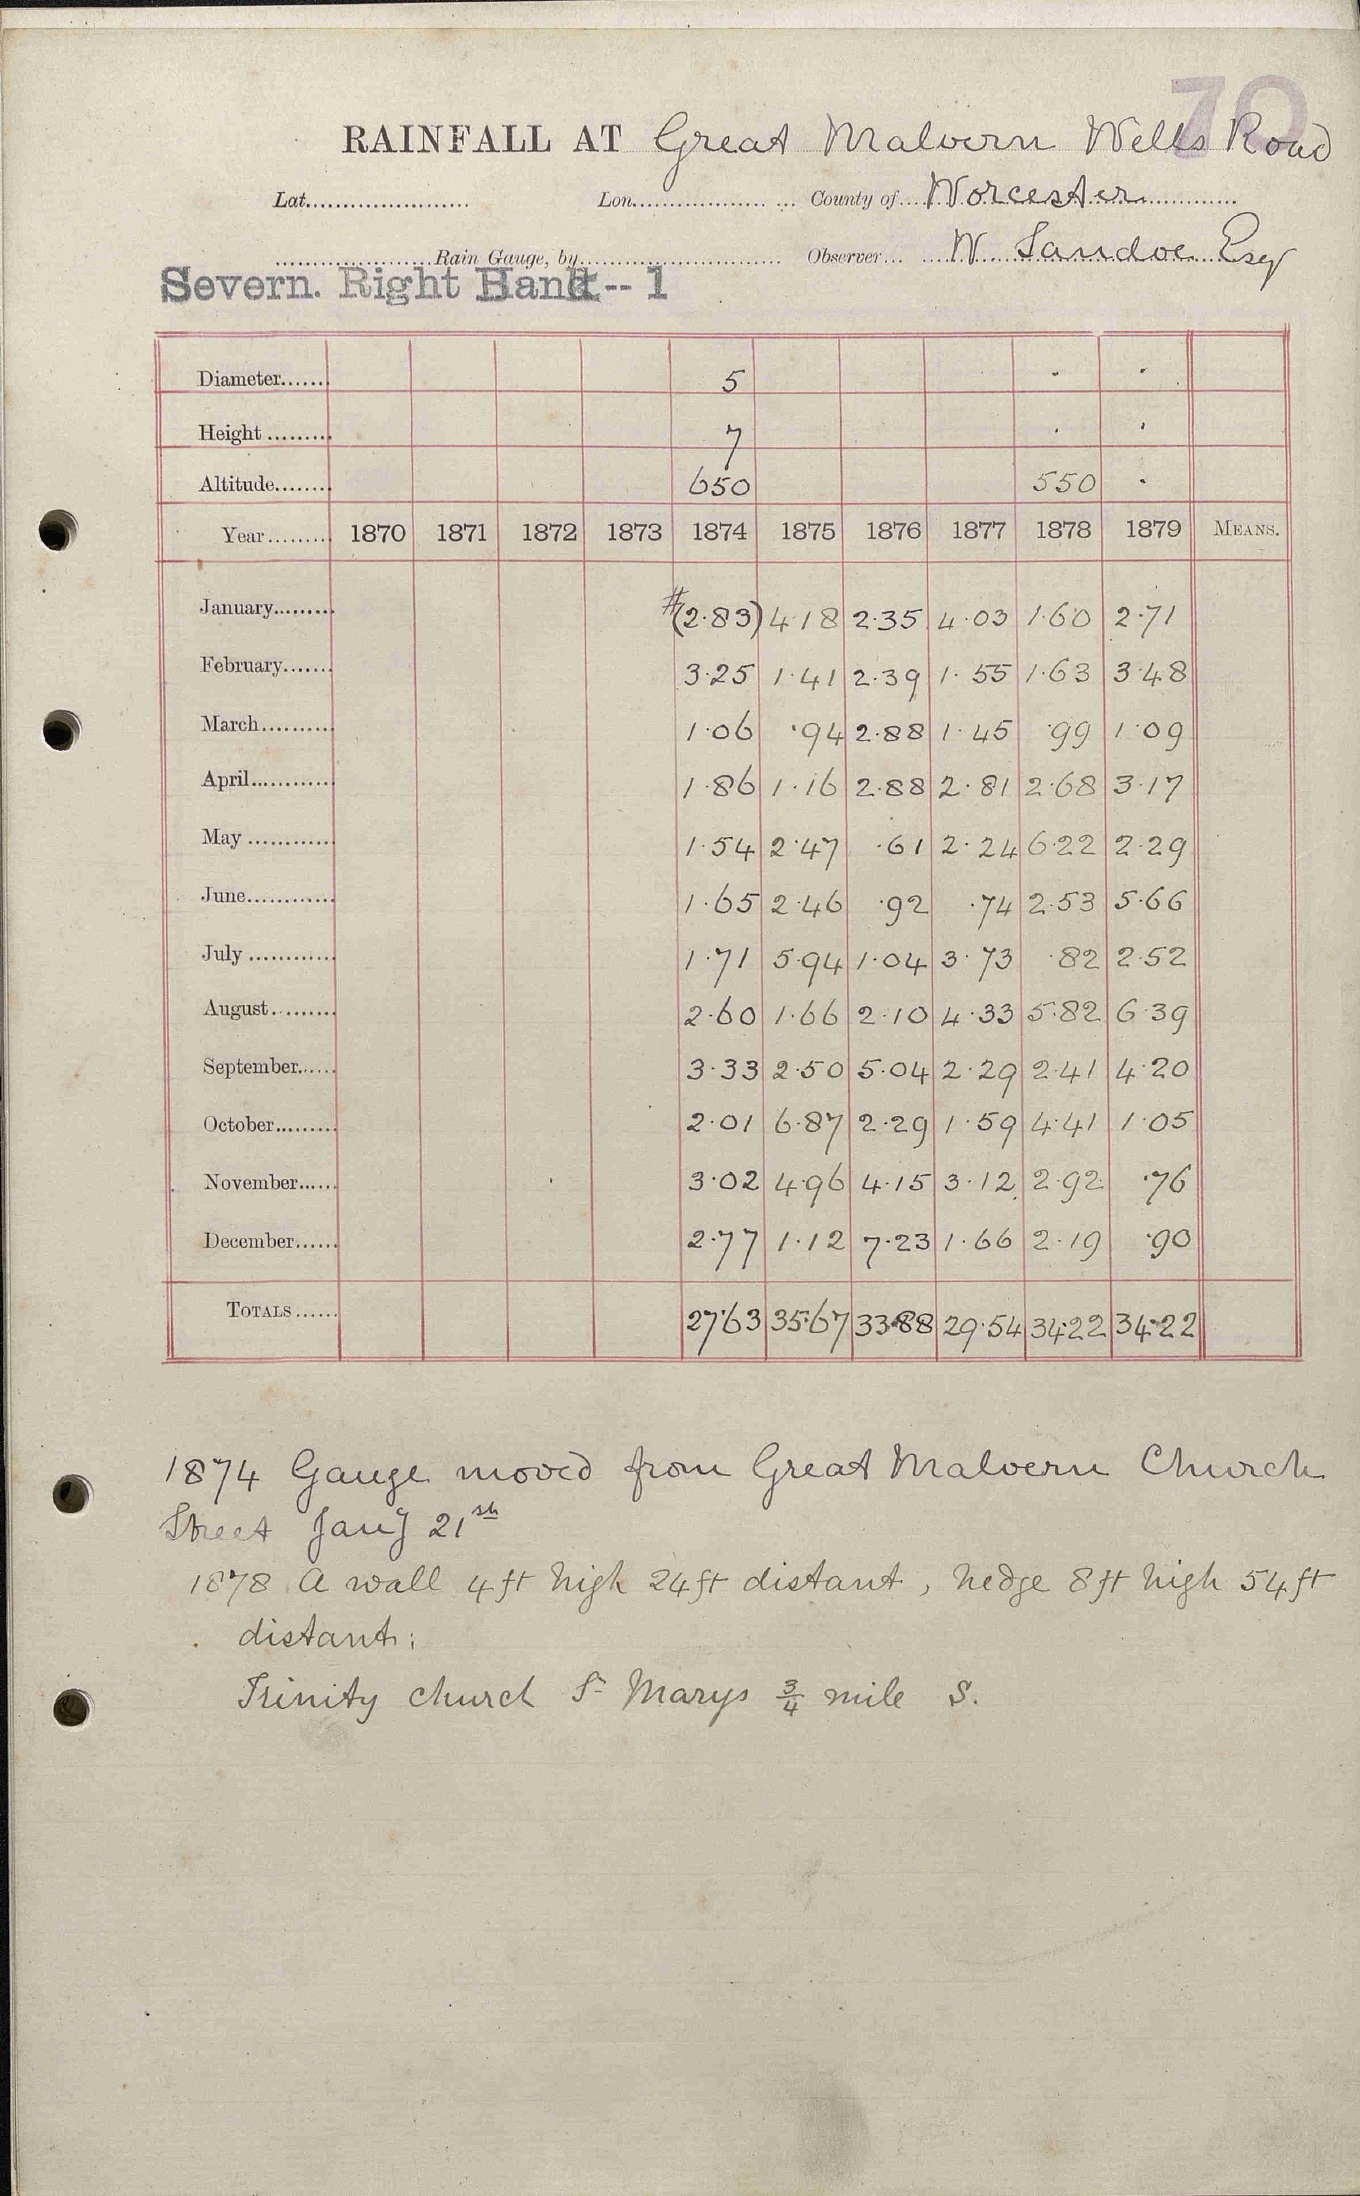 70
RAINFALL AT Great Malvern Wells Road
Lat. Lon. County of Worcester
Rain Gauge, by Observer W Sandoe Esqr
Severn. Right Bank -- 1
Diameter 5 . .
Height 7 . .
Altitude 650 550 .
Year 1870 1871 1872 1873 1874 1875 1876 1877 1878 1879 MEANS.
January #(2.83) 4.18 2.35 4.03 1.60 2.71
February 3.25 1.41 2.39 1.55 1.63 3.48
March 1.06 .94 2.88 1.45 .99 1.09
April 1.86 1.16 2.88 2.81 2.68 3.17
May 1.54 2.47 .61 2.24 6.22 2.29
June 1.65 2.46 .92 .74 2.53 5.66
July 1.71 5.94 1.04 3.73 .82 2.52
August 2.60 1.66 2.10 4.33 5.82 6.39
September 3.33 2.50 5.04 2.29 2.41 4.20
October 2.01 6.87 2.29 1.59 4.41 1.05
November 3.02 4.96 4.15 3.12 2.92 .76
December 2.77 1.12 7.23 1.66 2.19 .90
TOTALS 27.63 35.67 33.88 29.54 34.22 34.22
1874 Gauge moved from Great Malvern Church
Street Jany 21st
1878 A wall 4ft high 24ft distant, hedge 8ft high 54ft
distant;
Trinity church St Marys ¾ mile S.